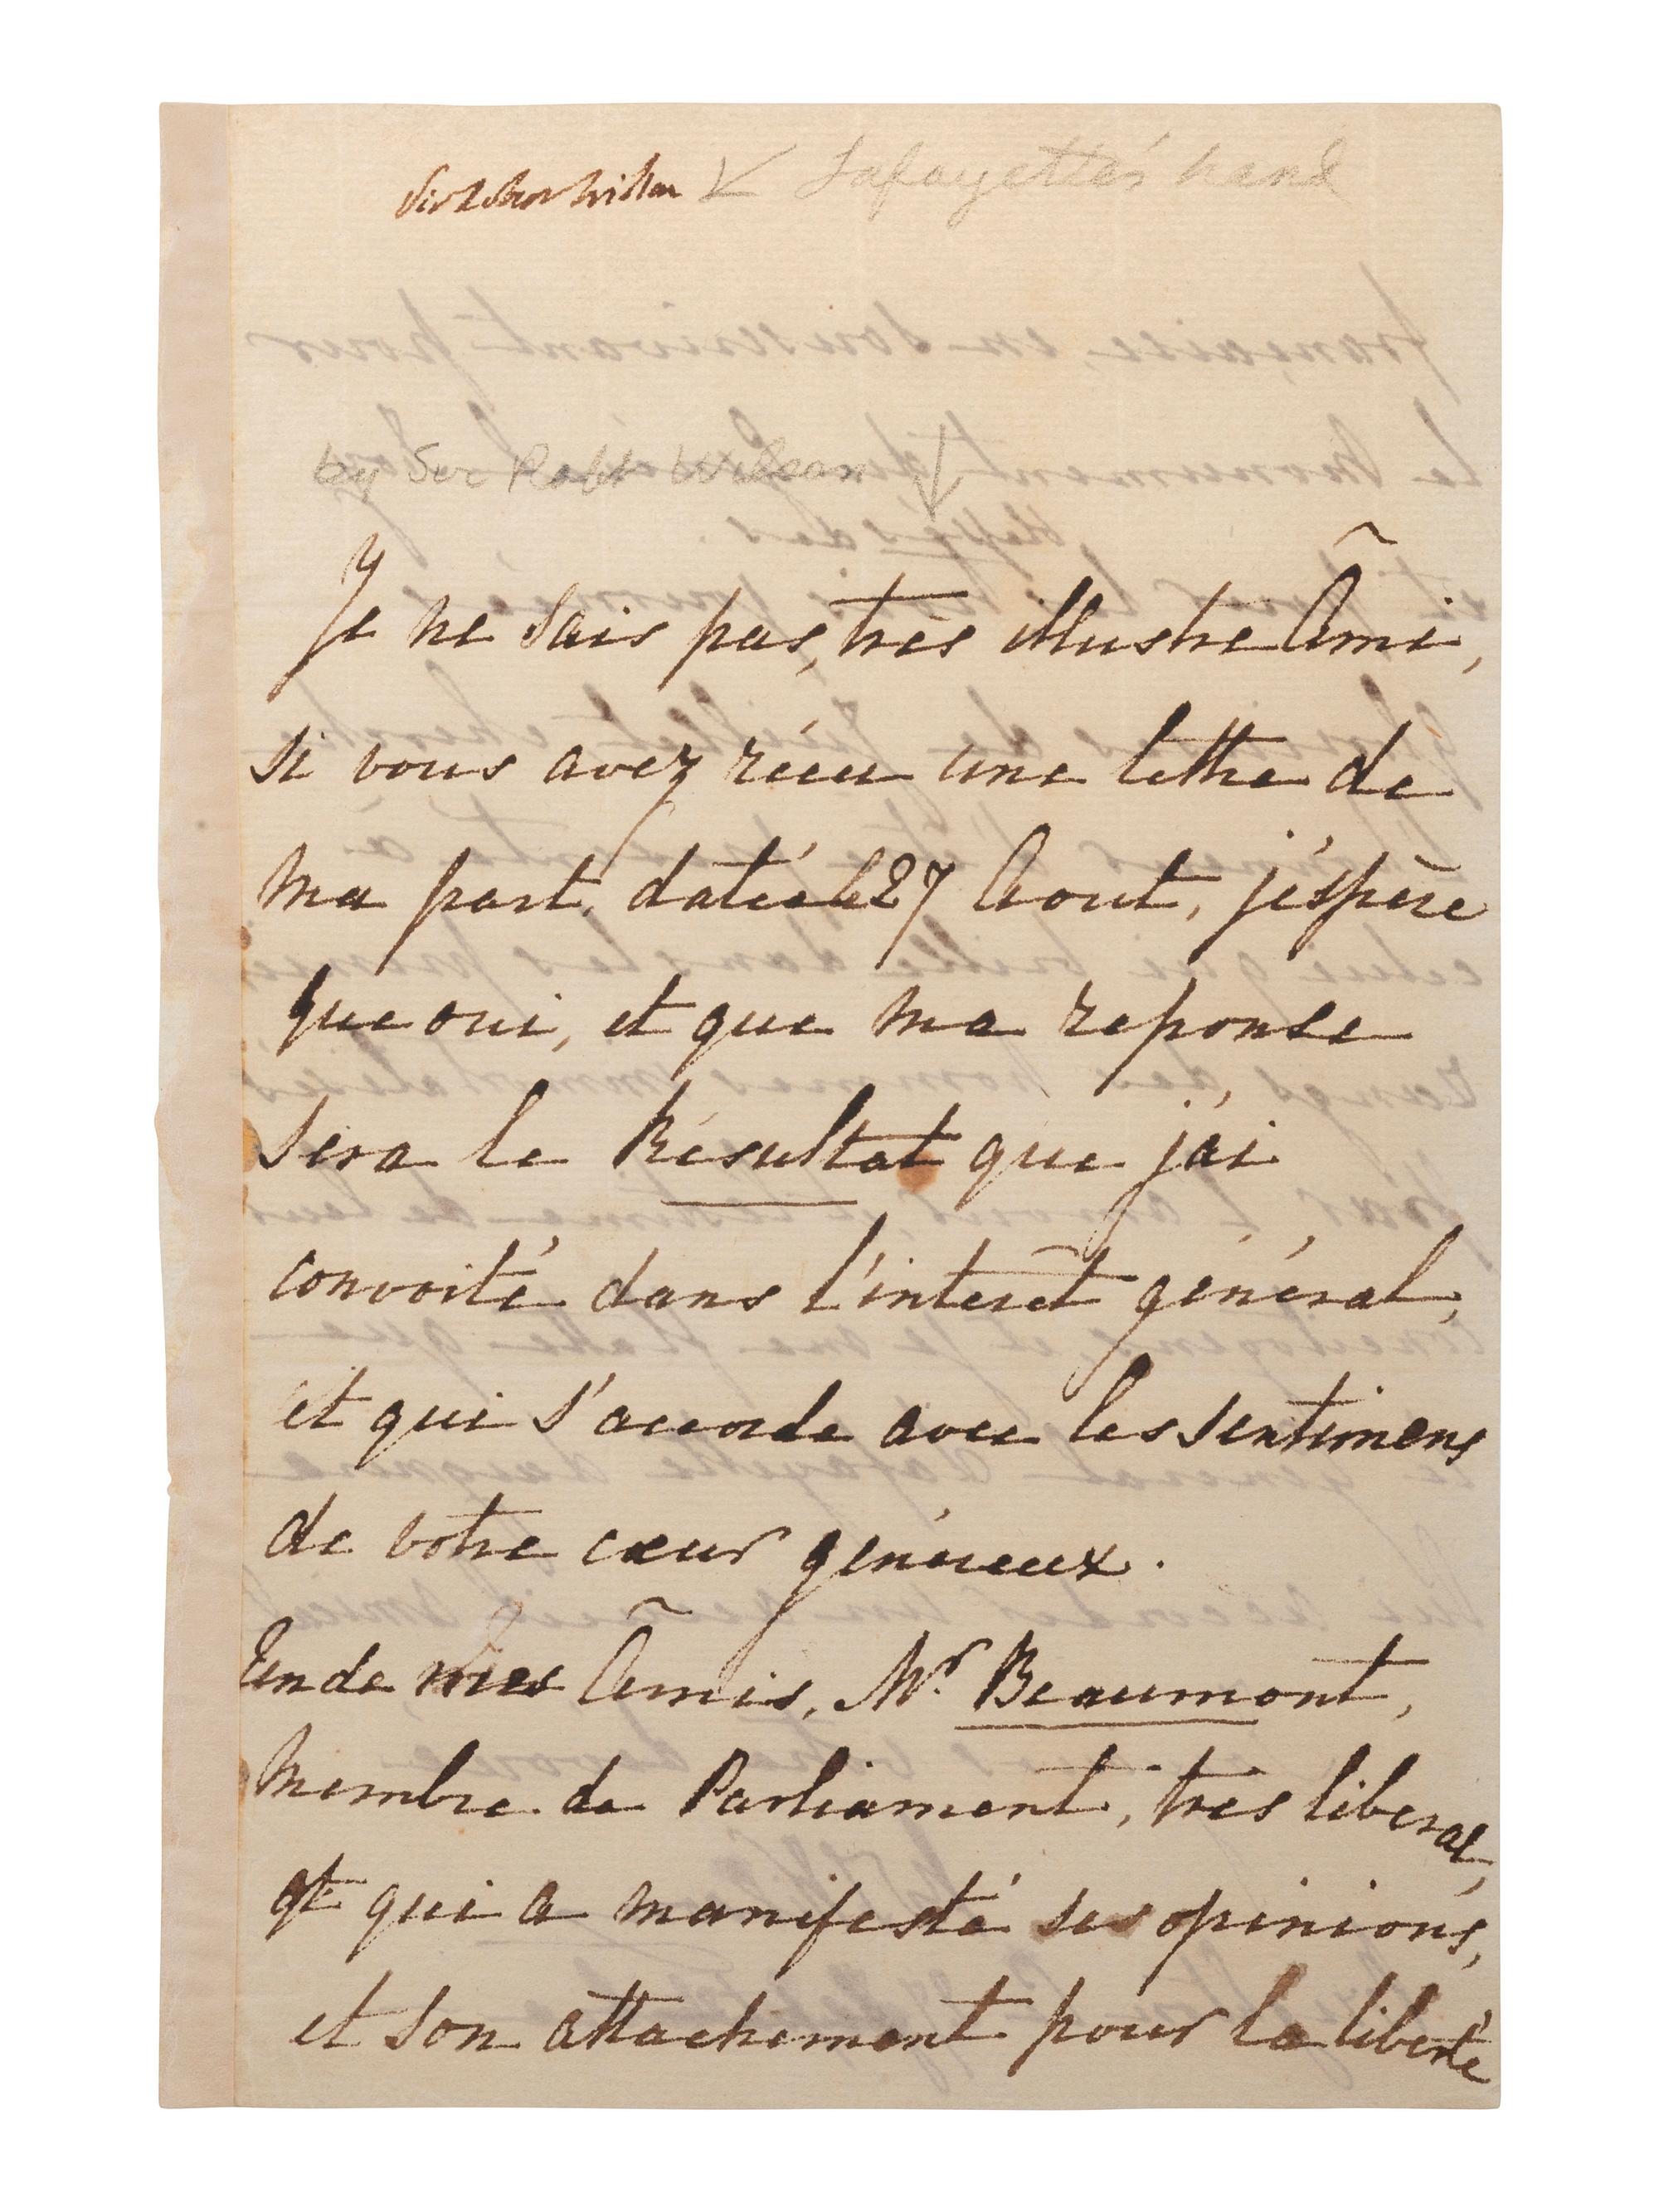 Sir Robert Wilson Lafayette's hand
by Sir Robt Wilson
Je ne Sais pas, très illustre Âmi,
si vous avez réçu une lettre de
Ma part, datée le 27 Aout, j'éspère
que oui, et que ma reponse
Sera le Résultat que j'ai
convoité dans l'interêt général,
et qui s'accorde avec les sentimens
de votre cœur généreux.
Un de mes Âmis, Mr. Beaumont,
Membre de Parliament, très liberal,
et qui a manifesté ses opinions,
et son attachement pour la liberté